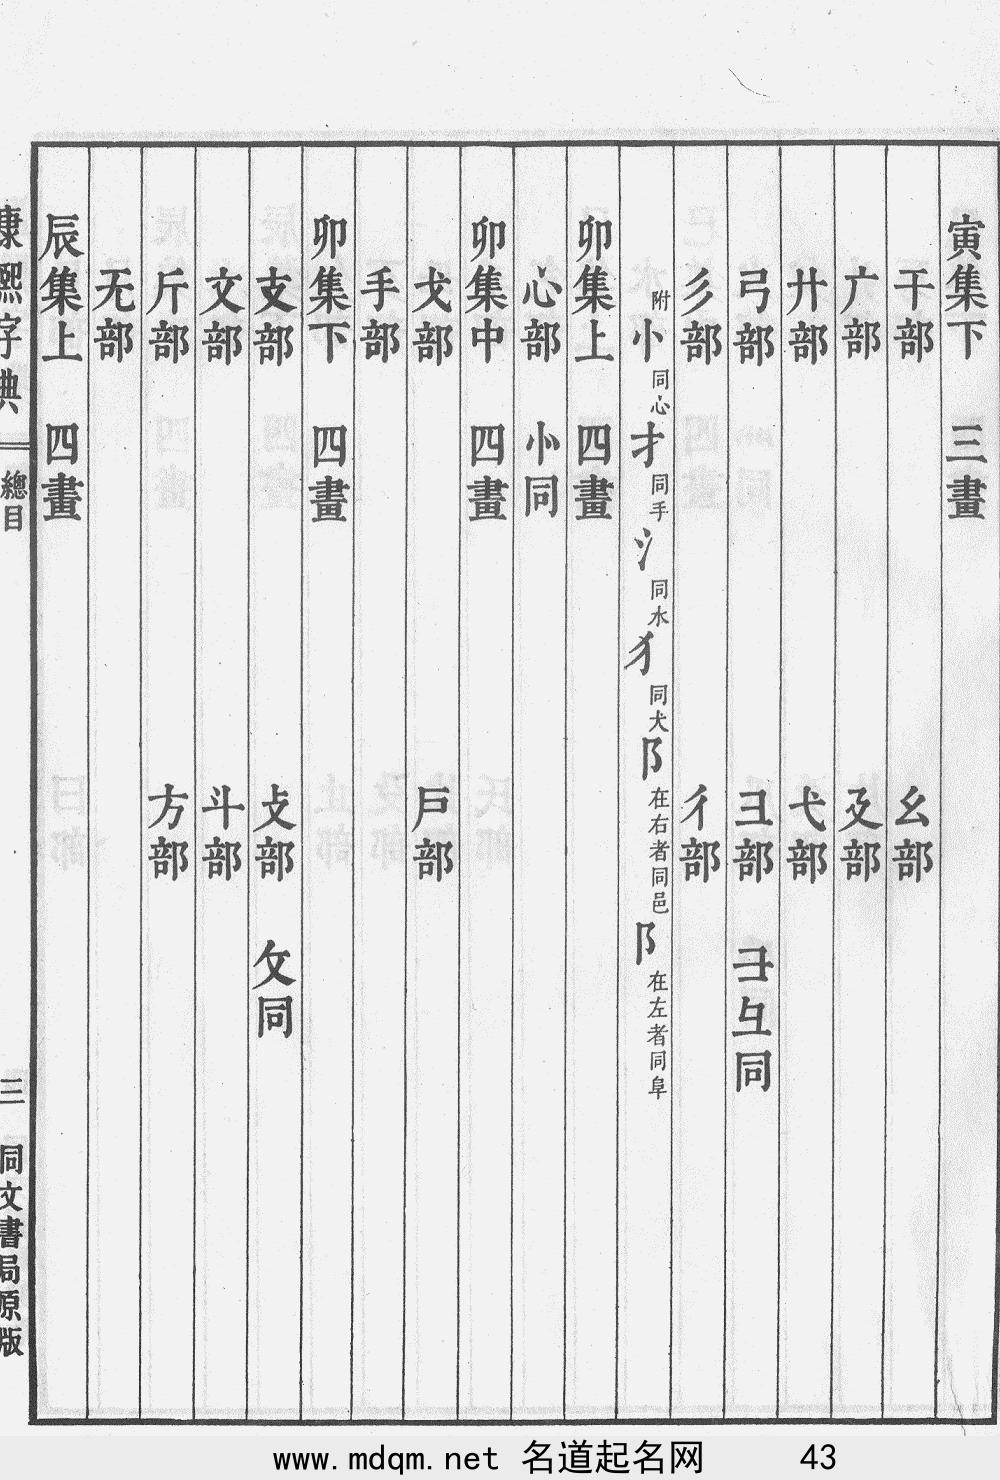 寅集下 三畫
干部 幺部
广部 廴部
廾部 弋部
弓部 彐部 彑同
彡部 彳部
附 㣺同心 扌同手 氵同水 犭同犬 阝在右者同邑 阝在左者同阜
卯集上 四畫
心部 㣺同
卯集中 四畫
戈部 戶部
手部
卯集下 四畫
支部 攴部 攵同
文部 斗部
斤部 方部
无部
辰集上 四畫
康熙字典 總目 三 同文書局原版
www.mdqm.net 名道起名网 43